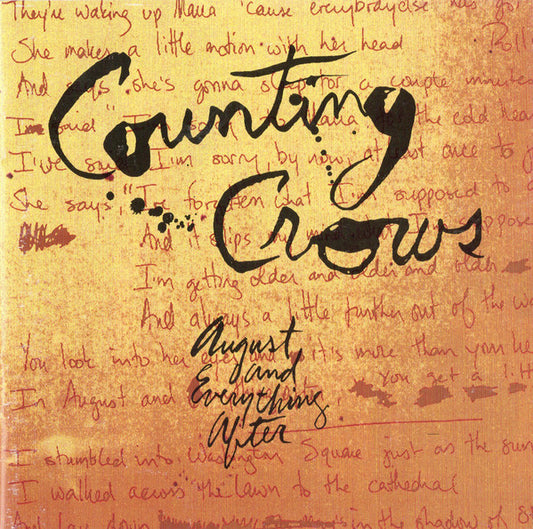 They're waking up Maria 'cause everybody else has got
She makes a little motion with her head
Rolls
And says she's gonna sleep for a couple minutes
Counting
I said I'm sorry Maria for the cold hea
I've said I'm sorry by now, at least once to
She says, "I've forgotten what I'm supposed to
Crows
And it slips my mind what I suppose
I'm getting older and older and older
And always a little further out of the wa
August
and
Everything
After
You look into her eyes and it's more than your he
In August and
You get a litt
I stumbled into Washington Square just as the sun
I walked across the lawn to the cathedral
And lay down in the shadow of